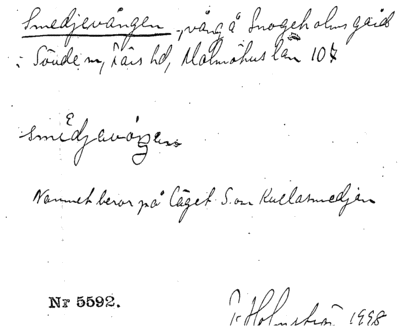 Smedjevången, vång å Snogeholms gård
i Sövde sn, Färs hd, Malmöhus län
smEdjevången
Namnet beror på läget S. om Kullasmedjan
Nr 5592.
Holmström 1998